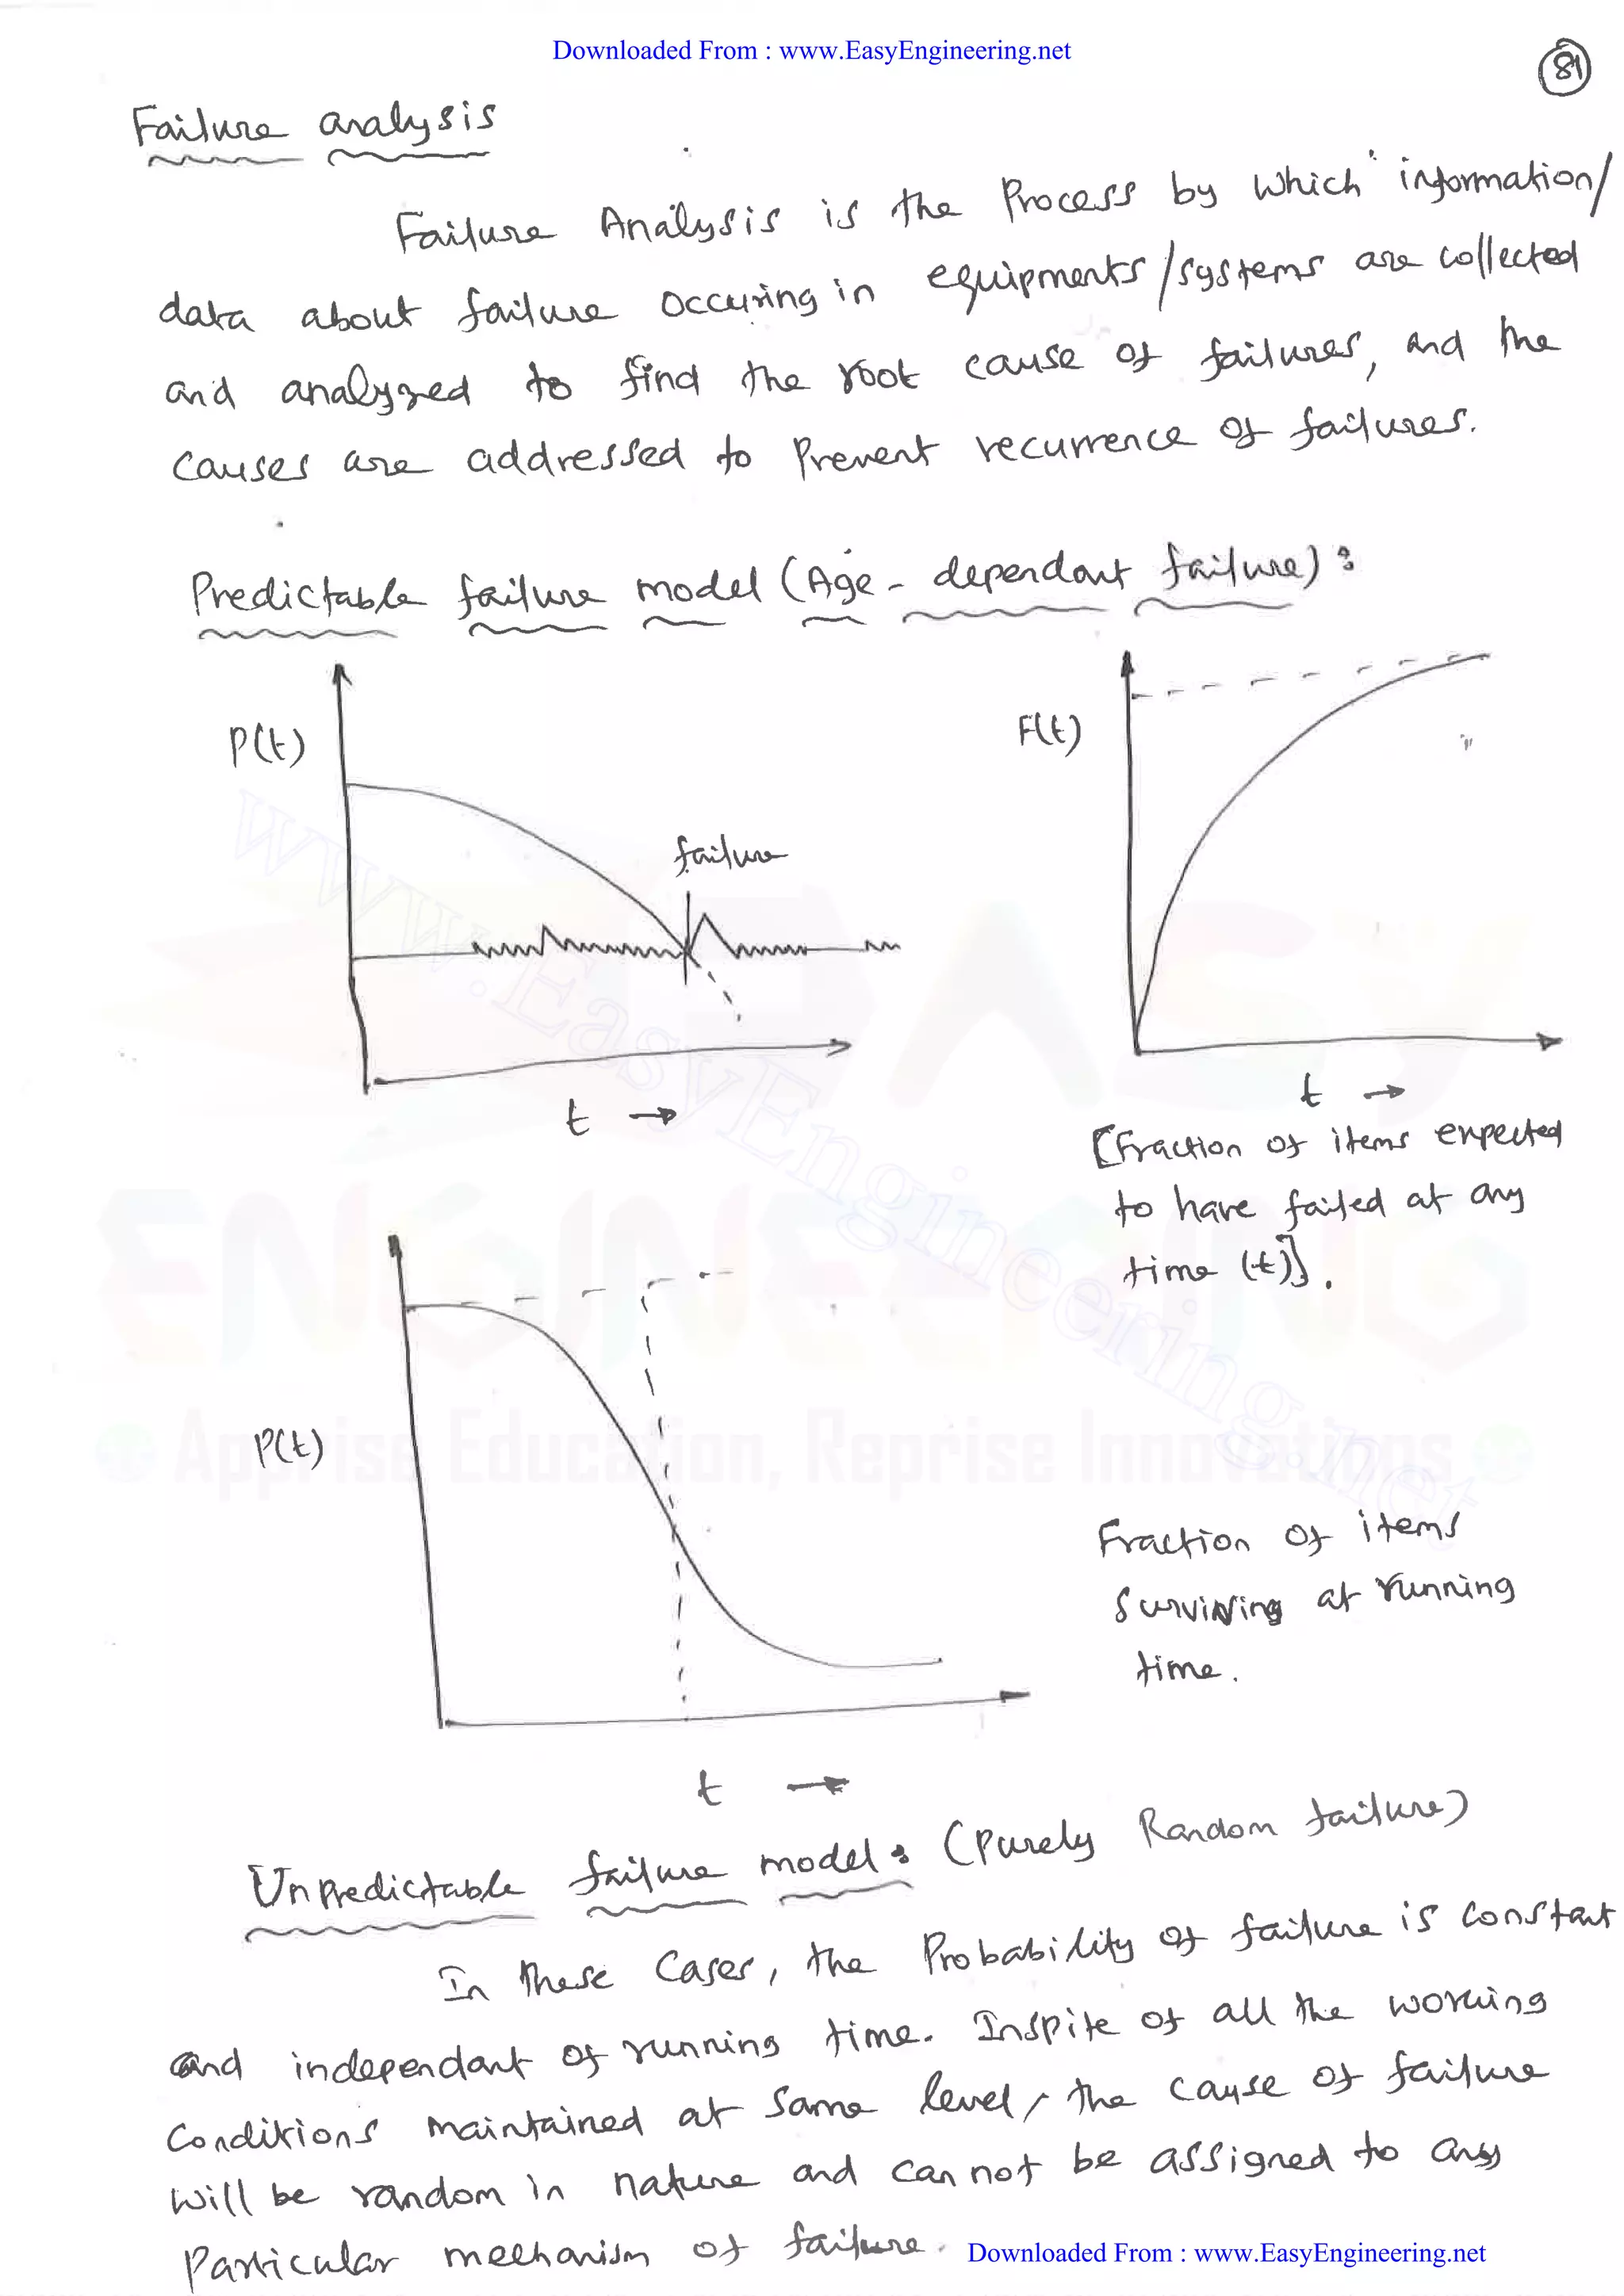 Downloaded From : www.EasyEngineering.net
81
Failure analysis
Failure Analysis is the Process by which information/
data about failure occuring in equipments/systems are collected
and analyzed to find the root cause of failures, and the
causes are addressed to Prevent recurrence of failures.
Predictable failure model (Age - dependant failure) :
P(t)
failure
t →
F(t)
t →
[Fraction of items expected
to have failed at any
time (t)].
P(t)
t →
Fraction of items
surviving at running
time.
Unpredictable failure model : (Purely Random failure)
In these cases, the Probability of failure is constant
and independant of running time. Inspite of all the working
conditions maintained at same level, the cause of failure
will be random in nature and can not be assigned to any
particular mechanism of failure.
Downloaded From : www.EasyEngineering.net
www.EasyEngineering.net
EASY
ENGINEERING
Apprise Education, Reprise Innovations